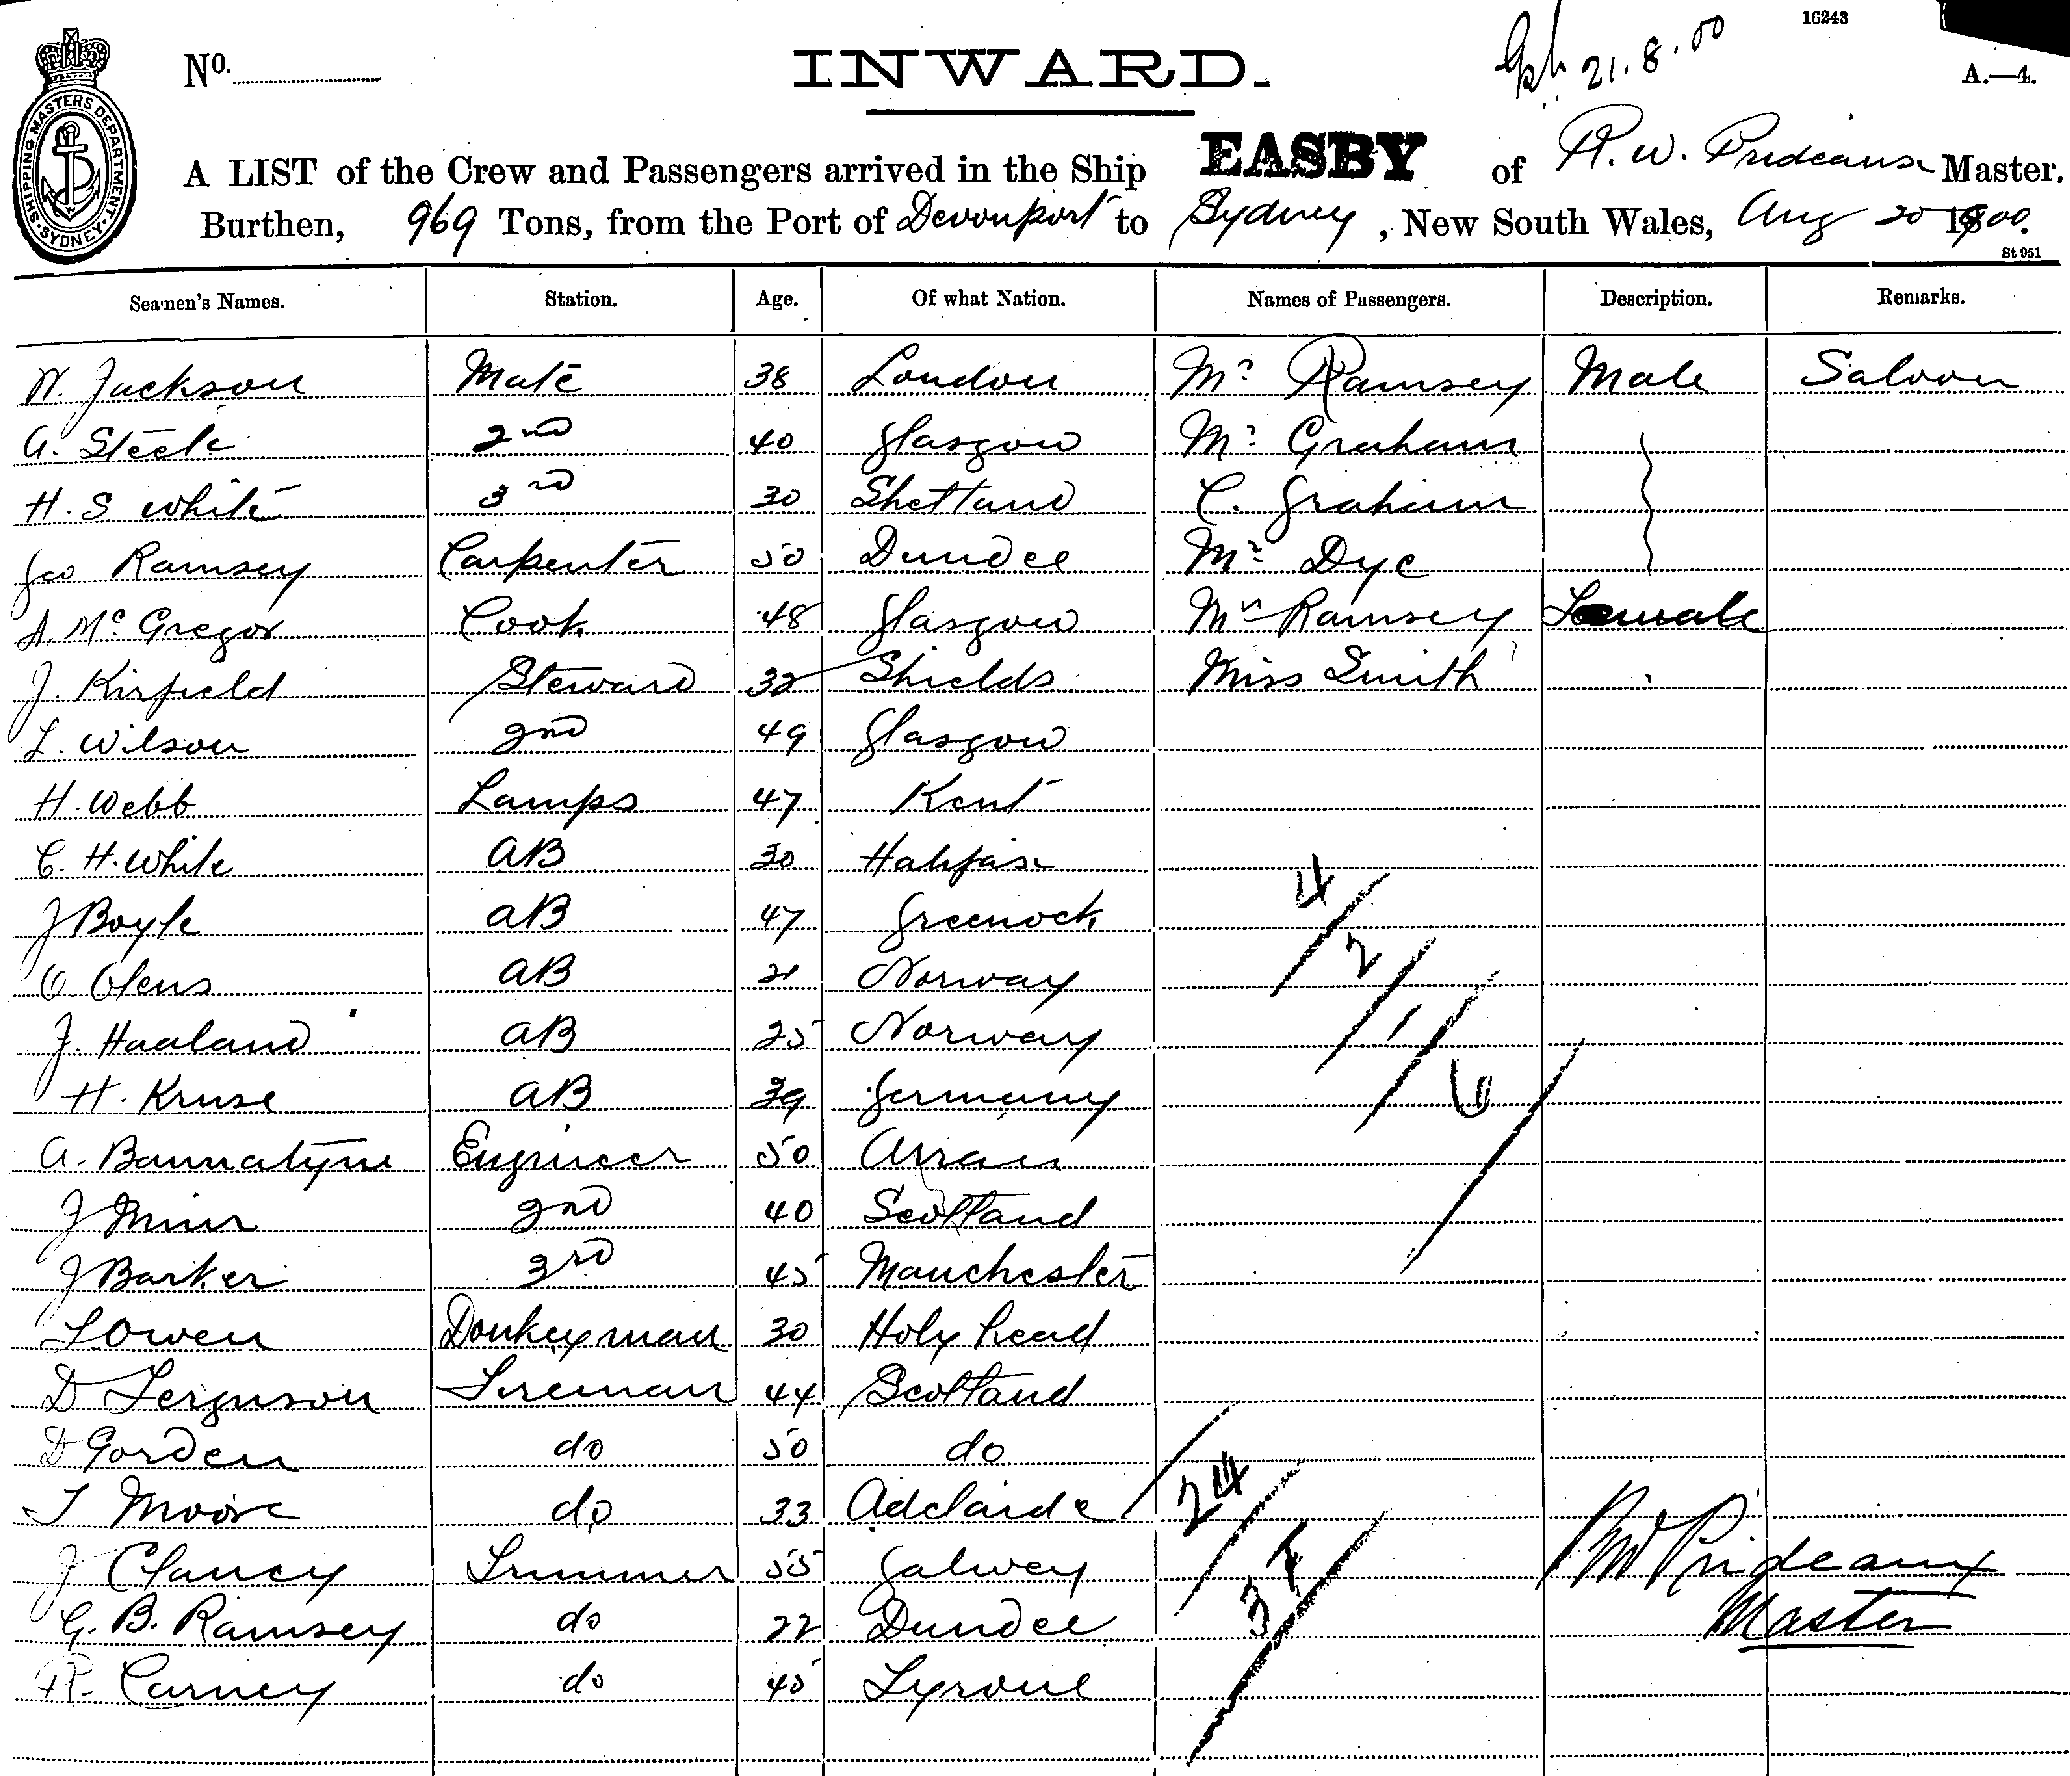 16243
Gph 21.8.00
No.
INWARD.
A.—4.
SHIPPING MASTERS DEPARTMENT. SYDNEY.
A LIST of the Crew and Passengers arrived in the Ship EASBY of R. W. Prideaux Master.
Burthen, 969 Tons, from the Port of Devonport to Sydney, New South Wales, Aug 20 1900.
St 951
Seamen's Names. Station. Age. Of what Nation. Names of Passengers. Description. Remarks.
W. Jackson Mate 38 London Mr Ramsey Male Saloon
A. Steele 2nd 40 Glasgow Mr Graham
H. S White 3rd 30 Shetland C. Graham
Geo Ramsey Carpenter 50 Dundee Mr Dye
A. McGregor Cook 48 Glasgow Mrs Ramsey Female
J. Kirfield Steward 32 Shields Miss Smith
L. Wilson 2nd 49 Glasgow
H. Webb Lamps 47 Kent
C. H. White AB 30 Halifax
J Boyle AB 47 Greenock
O Olens AB 21 Norway
J. Haaland AB 25 Norway
H. Kruse AB 39 Germany
A. Bannatyne Engineer 50 Arran
J Muir 2nd 40 Scotland
J Barker 3rd 45 Manchester
L Owen Donkeyman 30 Holyhead
D Ferguson Fireman 44 Scotland
D Gorden do 50 do
T Moore do 33 Adelaide
J Clancy Trimmer 55 Galwey
G. B. Ramsey do 22 Dundee
R. Carney do 45 Tyrone
4/2/1/6/
/24/
RW Prideaux
Master